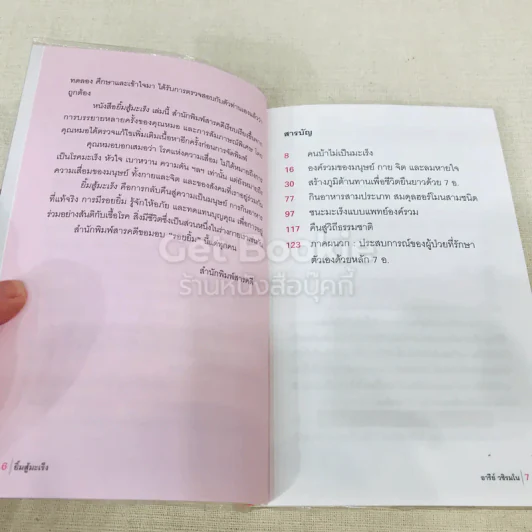 ทดลอง ศึกษาและเข้าใจมา ได้รับการตรวจสอบกับตัวท่านเองแล้วว่า
ถูกต้อง
หนังสือยิ้มสู้มะเร็ง เล่มนี้ สำนักพิมพ์สารคดีเรียบเรียงขึ้นจาก
การบรรยายหลายครั้งของคุณหมอ และการสัมภาษณ์พิเศษ โดย
คุณหมอได้ตรวจแก้ไขเพิ่มเติมเนื้อหาอีกครั้งก่อนการจัดพิมพ์
คุณหมอบอกเสมอว่า โรคแห่งความเสื่อม ไม่ได้หมายถึงการ
เป็นโรคมะเร็ง หัวใจ เบาหวาน ความดัน ฯลฯ เท่านั้น แต่ยังหมายถึง
ความเสื่อมของมนุษย์ ทั้งกายและจิต และของสังคมที่เราอยู่ร่วมกัน
ยิ้มสู้มะเร็ง คือการกลับคืนสู่ความเป็นมนุษย์ การกินอาหาร
ที่แท้จริง การมีรอยยิ้ม รู้จักให้อภัย และทดแทนบุญคุณ เพื่อการอยู่
ร่วมอย่างสันติกับเชื้อโรค สิ่งมีชีวิตซึ่งเป็นส่วนหนึ่งในร่างกาย
สำนักพิมพ์สารคดีขอมอบ "รอยยิ้ม" นี้แด่ทุกคน
สำนักพิมพ์สารคดี
6 ยิ้มสู้มะเร็ง
สารบัญ
8 คนบ้าไม่เป็นมะเร็ง
16 องค์รวมของมนุษย์ กาย จิต และลมหายใจ
30 สร้างภูมิต้านทานเพื่อชีวิตยืนยาวด้วย 7 อ.
77 กินอาหารสามประเภท สมดุลฮอร์โมนสามชนิด
97 ชนะมะเร็งแบบแพทย์องค์รวม
117 คืนสู่วิถีธรรมชาติ
123 ภาคผนวก : ประสบการณ์ของผู้ป่วยที่รักษา
ตัวเองด้วยหลัก 7 อ.
อารีย์ วชิรมโน 7
Get Bookie
ร้านหนังสือบุ๊คกี้